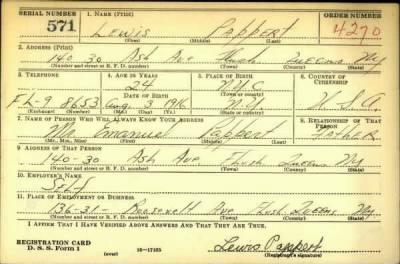 SERIAL NUMBER 571 1. NAME (Print) ORDER NUMBER
Lewis Pappert 4270
(First) (Middle) (Last)
2. ADDRESS (Print)
140-30 Ash Ave Flush Queens NY
(Number and street or R. F. D. number) (Town) (County) (State)
3. TELEPHONE 4. AGE IN YEARS 5. PLACE OF BIRTH 6. COUNTRY OF CITIZENSHIP
24 N.Y.C.
DATE OF BIRTH (Town or county)
FL-9 8653 Aug. 3 1916 N.Y. U.S.A.
(Exchange) (Number) (Mo.) (Day) (Yr.) (State or country)
7. NAME OF PERSON WHO WILL ALWAYS KNOW YOUR ADDRESS 8. RELATIONSHIP OF THAT PERSON
Mr. Emanuel Pappert Father
(Mr., Mrs., Miss) (First) (Middle) (Last)
9. ADDRESS OF THAT PERSON
140-30 Ash Ave Flush Queens NY
(Number and street or R. F. D. number) (Town) (County) (State)
10. EMPLOYER'S NAME
Self
11. PLACE OF EMPLOYMENT OR BUSINESS
136-31 Roosevelt Ave Flush Queens NY
(Number and street or R. F. D. number) (Town) (County) (State)
I AFFIRM THAT I HAVE VERIFIED ABOVE ANSWERS AND THAT THEY ARE TRUE.
REGISTRATION CARD
D. S. S. Form 1 (over) 16-17105 Lewis Pappert
(Registrant's signature)